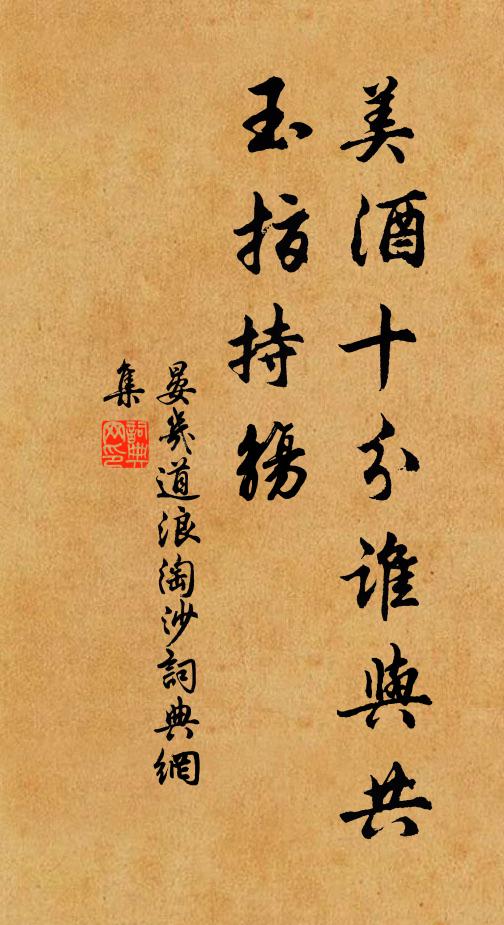 美酒十分誰與共
玉指持觴
晏幾道浪淘沙詞典網
集
詞典網印